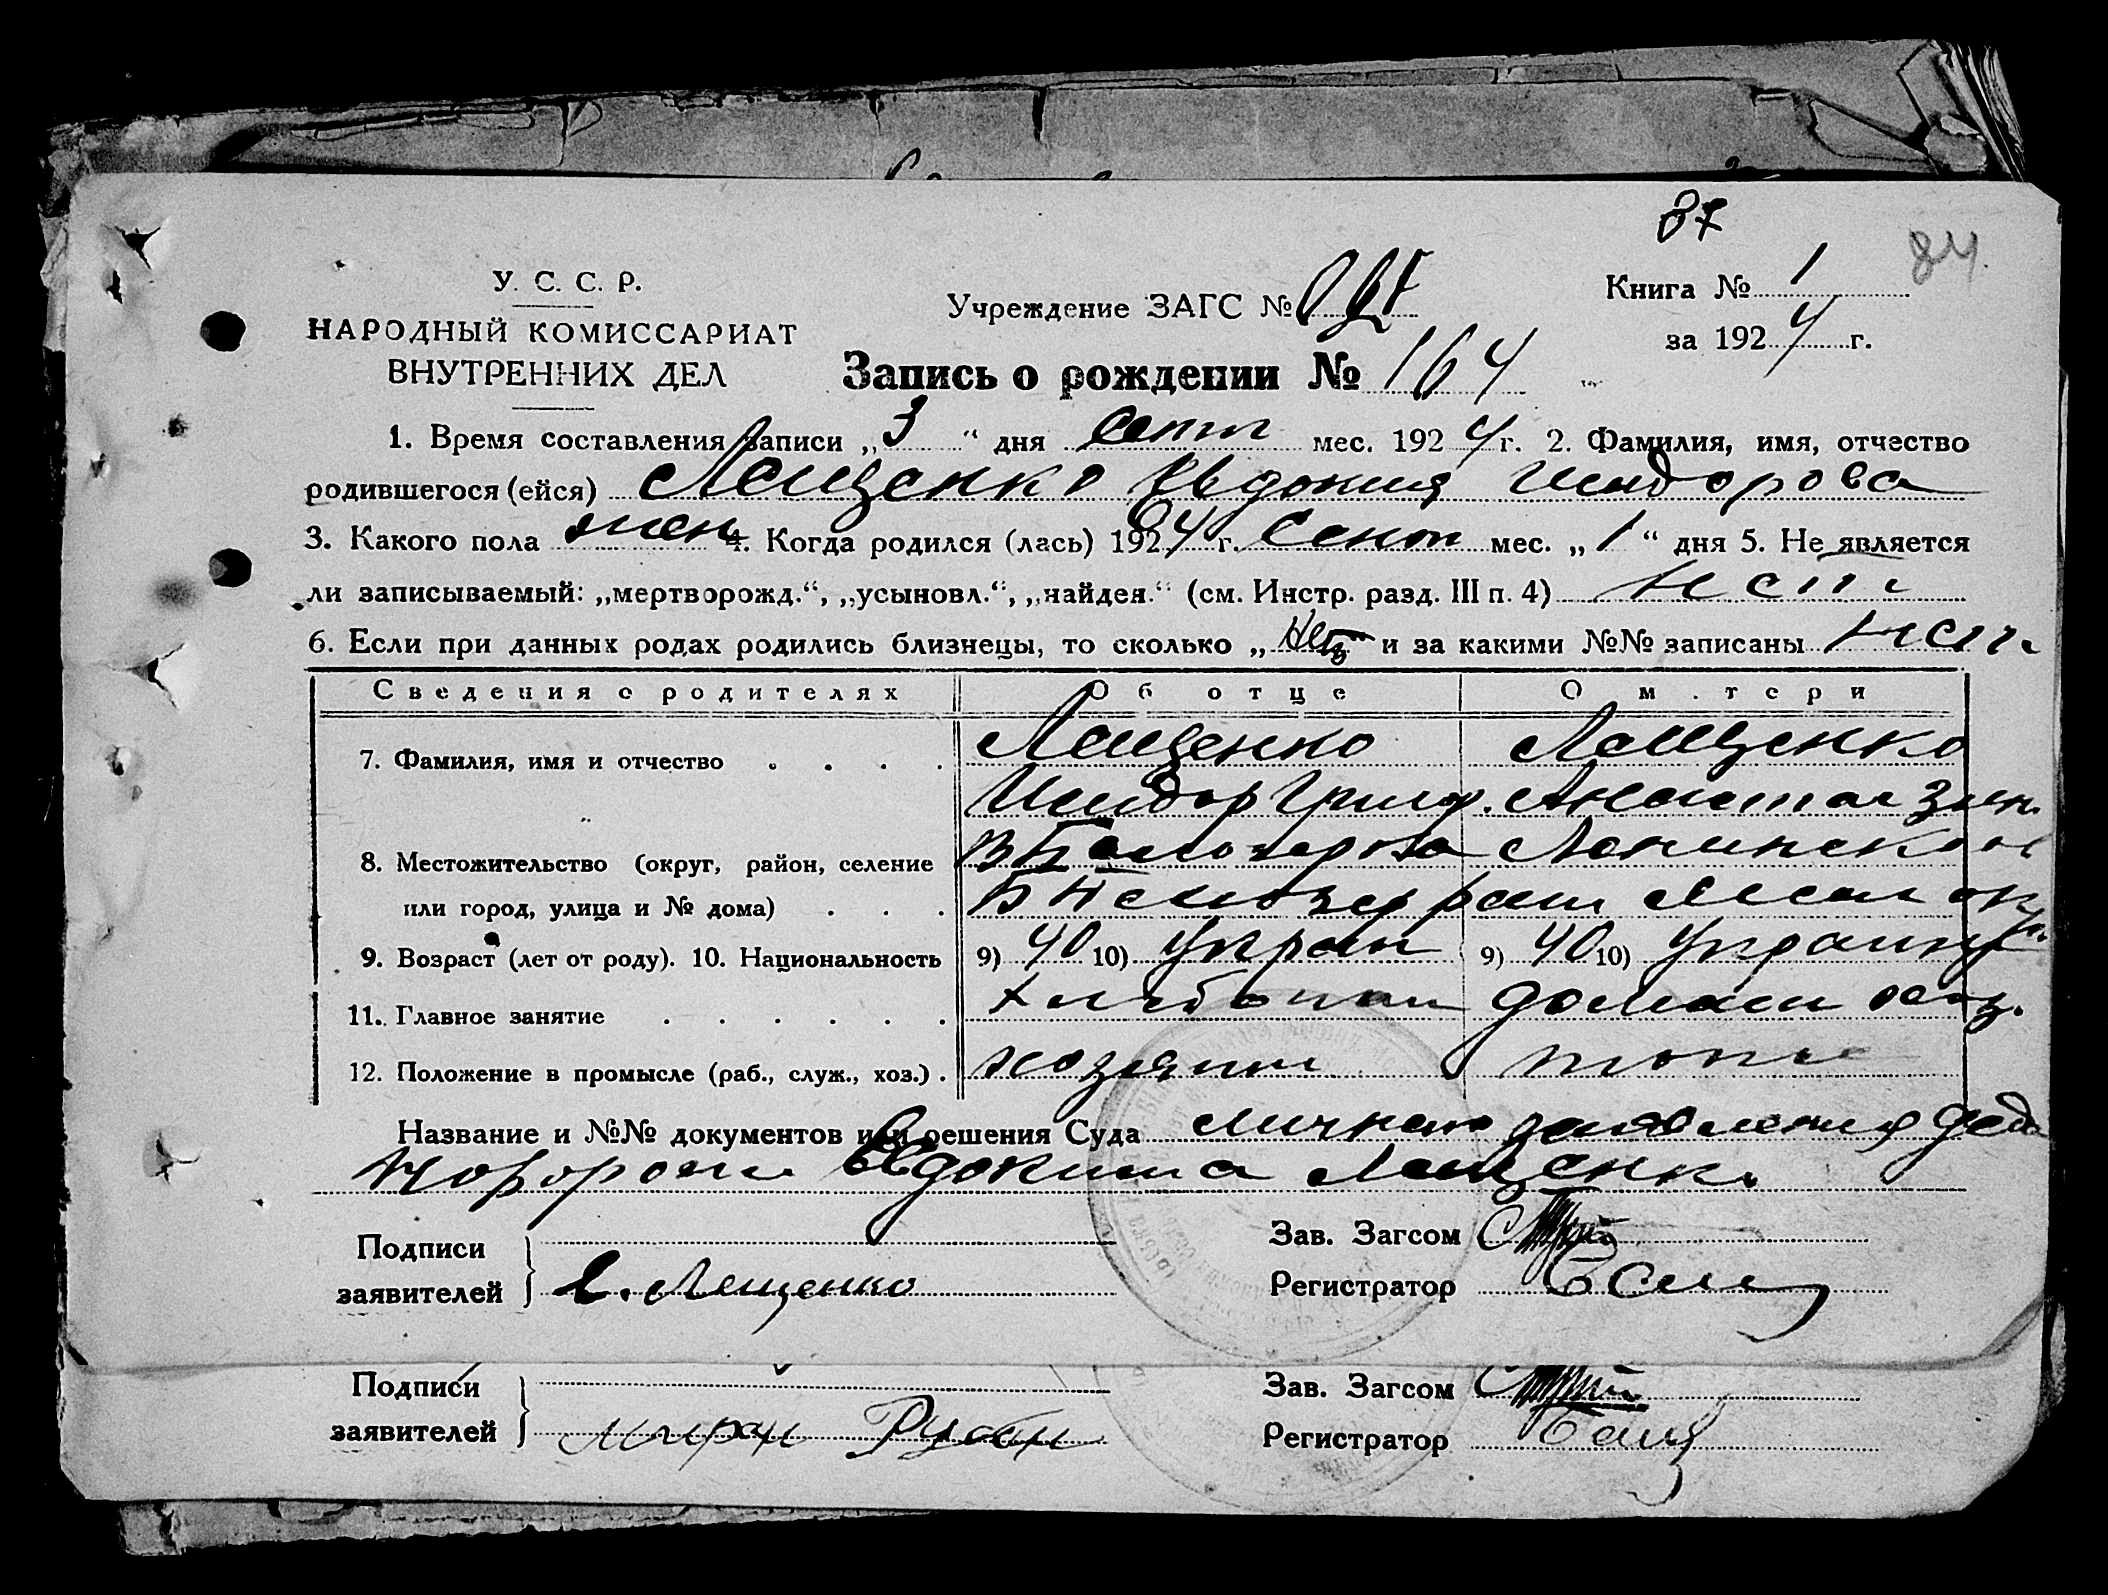 87
84
У. С. С. Р.
НАРОДНЫЙ КОМИССАРИАТ
ВНУТРЕННИХ ДЕЛ
Учреждение ЗАГС №
Книга № 1
за 1924 г.
Запись о рождении № 164
1. Время составления записи „3“ дня сент мес. 1924 г. 2. Фамилия, имя, отчество
родившегося (ейся) Лещенко Евдокия Исидорова
3. Какого пола жен 4. Когда родился (лась) 1924 г. Сент мес. „1“ дня 5. Не является
ли записываемый: „мертворожд.“, „усыновл.“, „найден.“ (см. Инстр. разд. III п. 4) нет
6. Если при данных родах родились близнецы, то сколько „нет“ и за какими №№ записаны нет
Сведения о родителях Об отце О м.тери
7. Фамилия, имя и отчество Лещенко Лещенко
Исидор Григор. Анастас Зин.
8. Местожительство (округ, район, селение
или город, улица и № дома)
9. Возраст (лет от роду). 10. Национальность 9) 40 10) Украин 9) 40 10) Украин
11. Главное занятие хлебопаш домаш хоз.
12. Положение в промысле (раб., служ., хоз.) хозяин
Название и №№ документов или решения Суда личного заявления деда
Евдокима Лещенк.
Подписи
заявителей Е. Лещенко
Зав. Загсом
Регистратор
Подписи
заявителей Мирон
Зав. Загсом
Регистратор